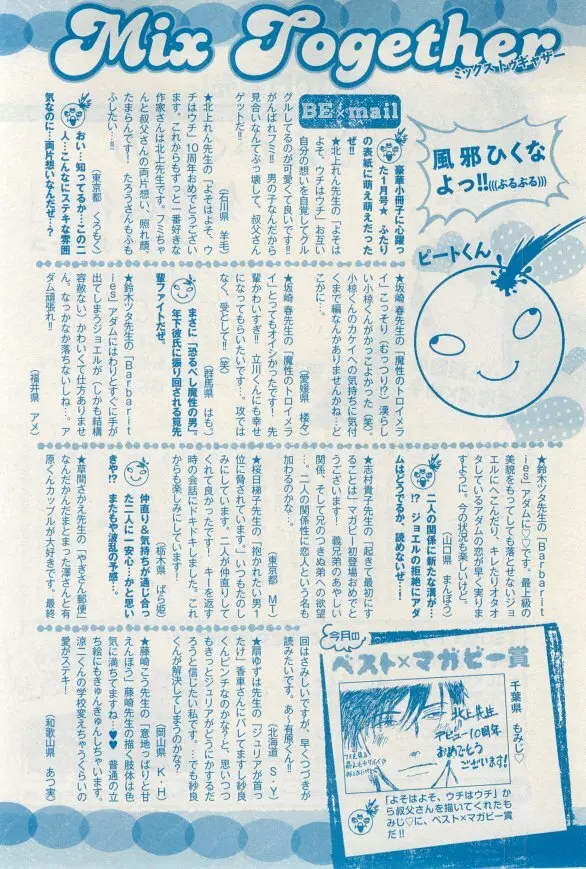 Mix Together
ミックストゥギャザー
BE×mail
風邪ひくな
よっ!!(((ぶるぶる)))
ピートくん
豪華小冊子に心躍っ
た1月号★ ふたり
の表紙に萌え萌えだった
ぜ!!
★北上れん先生の「よそは
よそ、ウチはウチ」お互い
自分の想いを自覚してグル
グルしてるのが可愛くて良いです!!
がんばれフミ!! 男の子なんだから
見合いなんてぶっ壊して、叔父さん
ゲットだ!!
(石川県 羊毛)
★北上れん先生の「よそはよそ、ウ
チはウチ」10周年おめでとうござい
ます。これからもずっと一番好きな
作家さんは北上先生です。フミちゃ
んと叔父さんの両片想い、照れ顔、
たまらんです! たろうさんもふも
ふしたい…!!
(東京都 くろもく)
おい…知ってるか…この二
人…こんなにステキな雰囲
気なのに…両片想いなんだぜ…?
★坂崎春先生の「魔性のトロイメラ
イ」こっそり(むっつり!?)漢らし
い小椋くんがかっこよかった(笑)。
小椋くんのカケイへの気持ちに気付
くまで編なんかありませんかね…ど
こかに…。
(愛媛県 楼々)
★坂崎春先生の「魔性のトロイメラ
イ」とってもオイシかったです! 先
輩かわいすぎ!! 立川くんにも幸せ
になってもらいたいです…。攻では
なく、受として!!(笑)
(群馬県 はも)
まさに「恐るべし魔性の男」。
年下彼氏に振り回される筧先
輩ファイトだぜ。
★鈴木ツタ先生の「Barbarit
ies」アダムにはわりとすぐに手が
出てしまうジョエルが(しかも結構
容赦ない)かわいくて仕方ありませ
ん。なっかなか落ちないしね…。ア
ダム頑張れ!!
(福井県 アメ)
★鈴木ツタ先生の「Barbarit
ies」アダムに♡♡です。最上級の
美貌をもってしても落とせないジョ
エルにへこんだり、キレたりオタオ
タしているアダムの恋が早く実りま
すように。今の状況も楽しいけど。
(山口県 まんぼう)
二人の関係に新たな溝が…
!? ジョエルの拒絶にアダ
ムはどうでるか、読めないぜ…!
★志村貴子先生の「起きて最初にす
ることは」マガビー初登場おめでと
うございます! 義兄弟のあやしい
関係、そして兄のつきぬ弟への欲望
…。二人の関係性に恋人という名も
加わるのかな…。
(東京都 MT)
★桜日梯子先生の「抱かれたい男1
位に脅されています。」いつもたのし
みにしています。二人が仲直りして
くれて良かったです! キーを返す
時の会話にドキドキしました。これ
からも楽しみにしています!
(栃木県 ばら姫)
仲直り&気持ちが通じ合っ
た二人に一安心…かと思い
きや!? またもや波乱の予感…。
★草間さかえ先生の「やぎさん郵便」
なんだかんだまとまった澤さんと有
原くんカップルが大好きです。最終
回はさみしいですが、早くつづきが
読みたいです。あ〜有原くん!!
(北海道 S・Y)
★扇ゆずは先生の「ジュリアが首っ
たけ」香車さんにバレてますし紗良
くんピンチなのかな?と、思いつつ
もきっとジュリアがどうにかするだ
ろうと信じたい私です。…でも紗良
くんが解決してしまうのかな?
(岡山県 K・H)
★藤崎こう先生の「意地っぱりと甘
えんぼう」藤崎先生の描く肢体は色
気に満ちてますね…♥♥ 普通の立
ち絵にもきゅんきゅんしちゃいます。
涼二くんの学校変えちゃうくらいの
愛がステキ!
(和歌山県 あつ実)
今月の
ベスト×マガビー賞
千葉県 もみじ♡
北上先生
デビュー10周年
おめでとう
ございます!
「よそはよそ、ウチはウチ」か
ら叔父さんを描いてくれたも
みじ♡に、ベスト×マガビー賞
だ!!